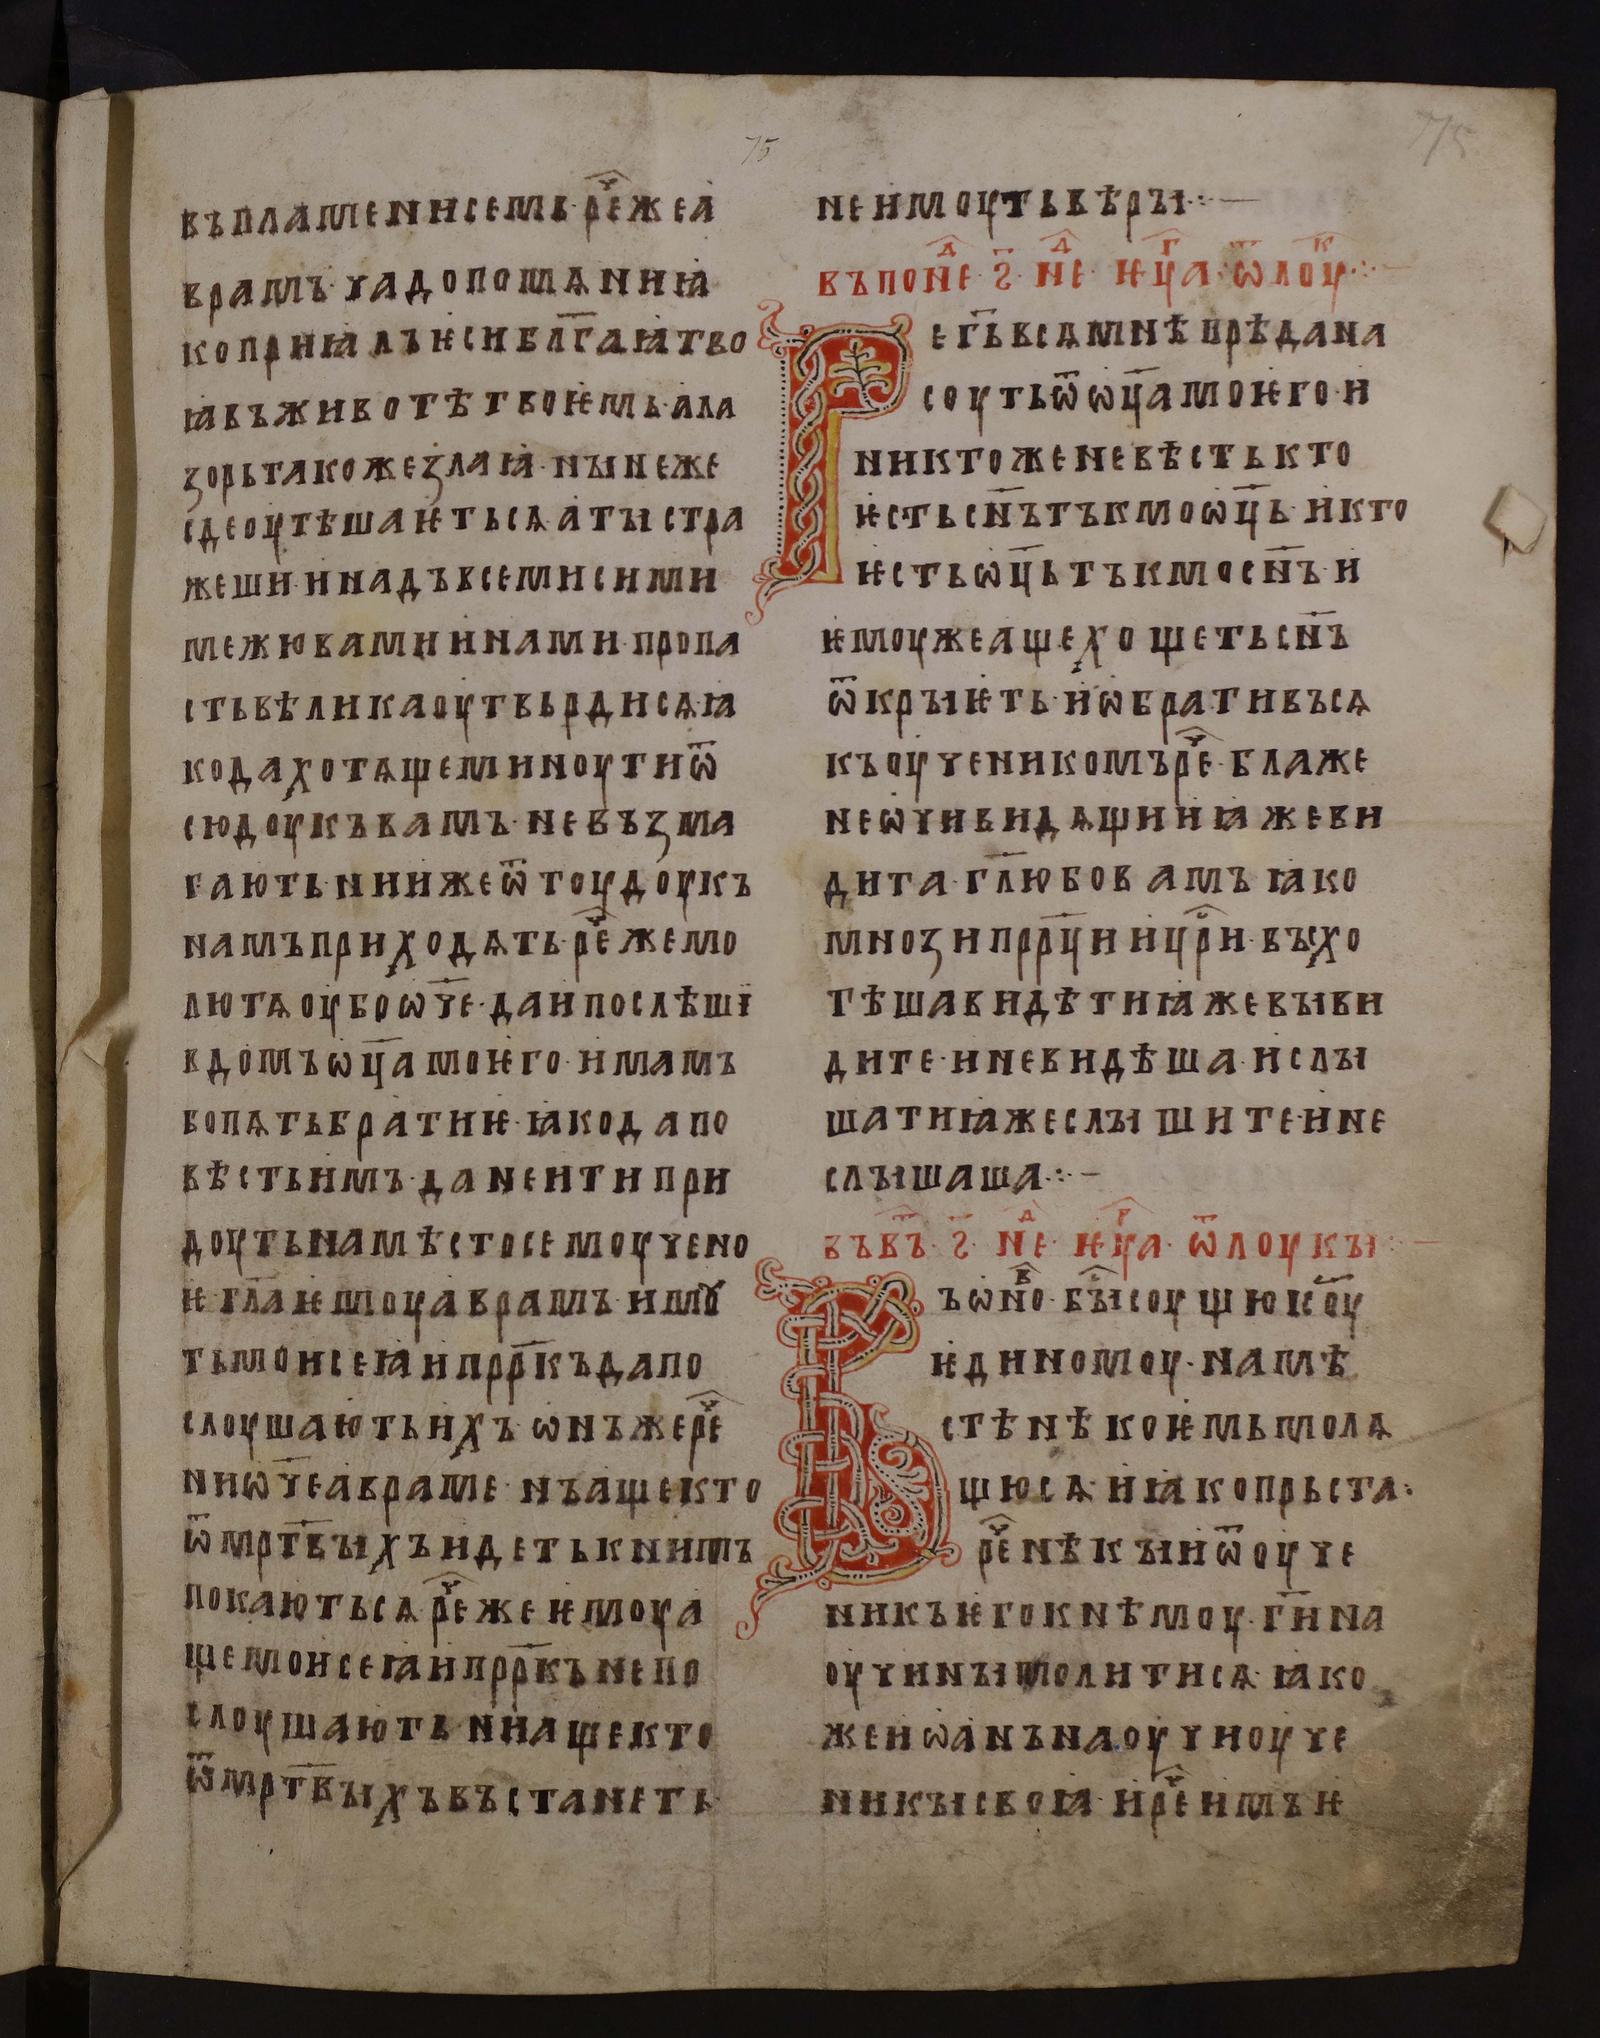 75
въпламенисемь·рⷱ҇ежеа
врамъ·чадопомѧниꙗ
коприꙗлъѥсибл҃гаꙗтво
ꙗвъживотѣтвоѥмь·ала
зорьтакожезлаꙗ·нынеже
сдеоутѣшаѥтьсѧатыстра
жеши·инадъвсемисими
межювамиинами·пропа
стьвѣликаоутвьрдисѧ·ꙗ
кодахотѧщеминоутиѿ
сюдоукъвамъ·невъзма
гаютьниижеѿтоудоукъ
намъприходѧть·рⷱ҇ежемо
лютѧоубоѡч҃е·даипослѣшї
вдомъѡц҃амоѥго·имамъ
бопѧтьбратиѥ·ꙗкодапо
вѣстьимъ·данеитипри
доутьнамѣстосемоучено
ѥ·гл҃аѥмоуаврамъ·имꙋ
тьмоисеꙗипрр҃къдапо
слоушаютьихъ·ѡнъжерⷱ҇е
ниѡч҃еавраме·нъащекто
ѿмрт҃выхъидетькнимъ
покаютьсѧрⷱ҇ежеѥмоуа
щемоисеꙗипрр҃къ·непо
слоушають·ниащекто
ѿмрт҃выхъвъстанеть
неимоутьвѣры·:—
въпонⷣе·ѕ҃·нⷣе·ѥуⷢ҇а·ѿлоуⷦ҇·:—
Ге г҃ьвсѧмнѣпрѣдана
соутьѿѡц҃амоѥго·и
никтоженевѣстькто
ѥстьсн҃ътъкмоѡц҃ь·икто
ѥстьѡц҃ьтъкмосн҃ъ·и
ѥмоужеащехощетьсн҃ъ
ѿкрыѥть·иѡбративъсѧ
къоученикомърⷱ҇е·блаже
неѡчивидѧщииꙗжеви
дита·гл҃юбовамъꙗко
мнозипрр҃циицⷭ҇ри·въсхо
тѣшавидѣтиꙗжевыви
дите·иневидѣша·ислы
шатиꙗжеслышите·ине
слышаша·:—
във҃ъ·ѕ҃·нⷣе·ѥуⷢ҇а·ѿлоукы:—
Въѡнⷪ҇о·бⷭ҇ысоущюіс҃оу
ѥдиномоу·намѣ
стѣнѣкоѥмьмолѧ
щюсѧ·иꙗкопрьста·
рⷱ҇енѣкыиѿоуче
никъѥгокнѣмоу·г҃ина
оучинымолитисѧ·ꙗко
жеиѡанънаоучиоуче
никысвоꙗ·ирⷱ҇еимъѥ